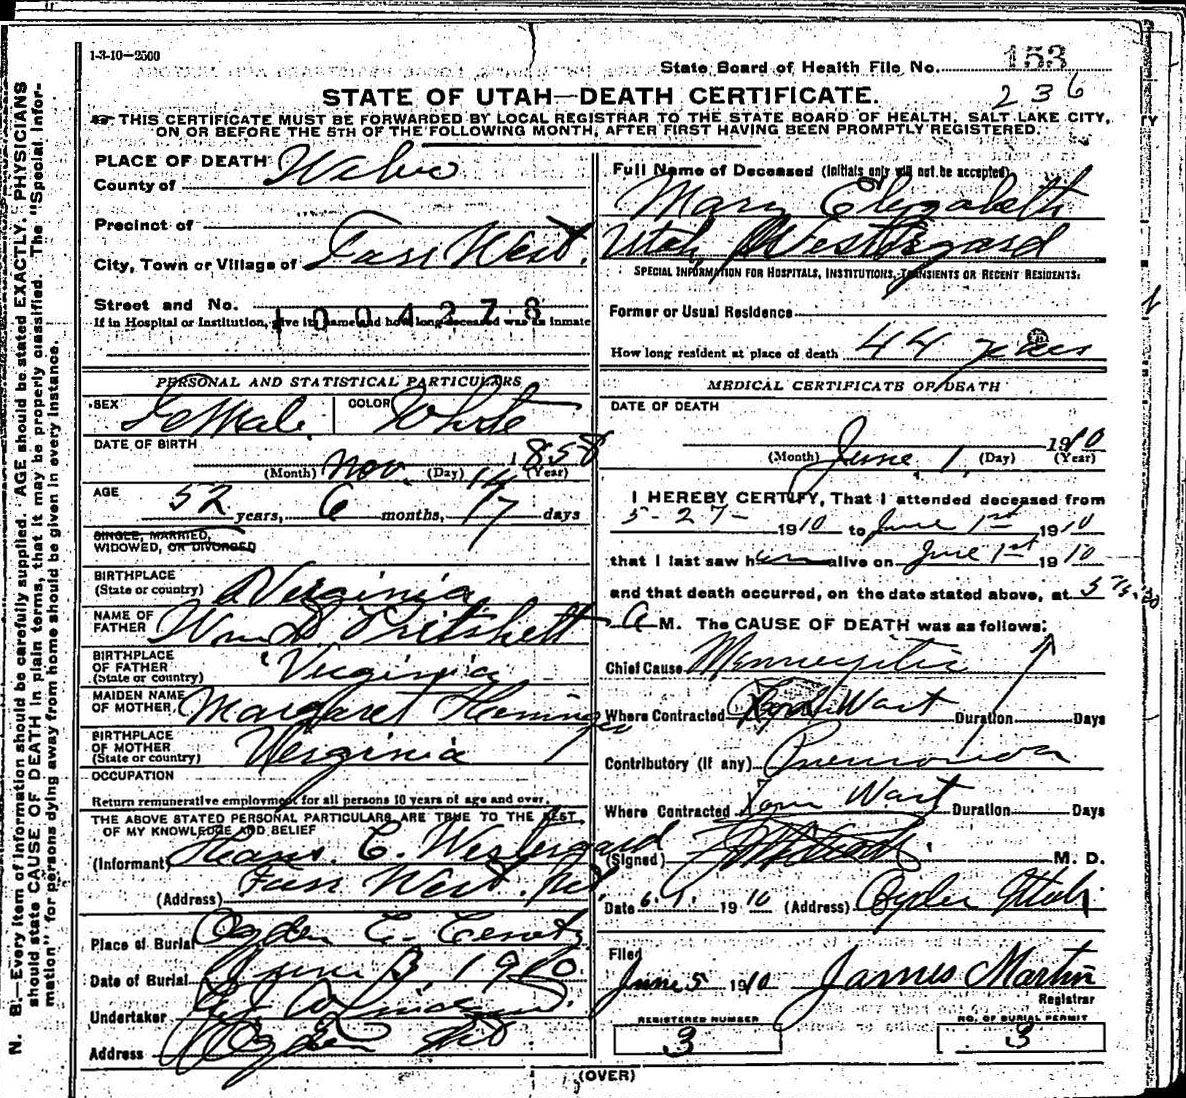 1-3-10—2500
State Board of Health File No. 153
236
STATE OF UTAH—DEATH CERTIFICATE.
THIS CERTIFICATE MUST BE FORWARDED BY LOCAL REGISTRAR TO THE STATE BOARD OF HEALTH, SALT LAKE CITY,
ON OR BEFORE THE 5TH OF THE FOLLOWING MONTH, AFTER FIRST HAVING BEEN PROMPTLY REGISTERED.
N. B.—Every item of information should be carefully supplied. AGE should be stated EXACTLY. PHYSICIANS
should state CAUSE OF DEATH in plain terms, that it may be properly classified. The "Special Infor-
mation" for persons dying away from home should be given in every instance.
PLACE OF DEATH
County of Weber
Precinct of
City, Town or Village of Farr West.
Street and No.
1004278
If in Hospital or Institution, give its name and how long deceased was an inmate
PERSONAL AND STATISTICAL PARTICULARS
SEX Female COLOR White
DATE OF BIRTH
(Month) Nov. (Day) 14 1858 (Year)
AGE
52 years, 6 months, 17 days
SINGLE, MARRIED,
WIDOWED, OR DIVORCED
BIRTHPLACE
(State or country) Virginia
NAME OF
FATHER Wm D. Pritchett
BIRTHPLACE
OF FATHER
(State or country) Virginia
MAIDEN NAME
OF MOTHER Margaret
BIRTHPLACE
OF MOTHER
(State or country) Verginia
OCCUPATION
Return remunerative employment for all persons 10 years of age and over.
THE ABOVE STATED PERSONAL PARTICULARS ARE TRUE TO THE BEST
OF MY KNOWLEDGE AND BELIEF
(Informant) Hans. C. Westergaard
(Address) Farr West.
Place of Burial Ogden C.
Date of Burial June 3 1910
Undertaker
Address Ogden
Full Name of Deceased (Initials only will not be accepted)
Mary Elizabeth
Utah Westergaard
SPECIAL INFORMATION FOR HOSPITALS, INSTITUTIONS, TRANSIENTS OR RECENT RESIDENTS:
Former or Usual Residence
How long resident at place of death 44 years
MEDICAL CERTIFICATE OF DEATH
DATE OF DEATH
(Month) June 1, (Day) 1910 (Year)
I HEREBY CERTIFY, That I attended deceased from
5-27- 1910 to June 1st 1910
that I last saw h alive on June 1st 1910
and that death occurred, on the date stated above, at
A M. The CAUSE OF DEATH was as follows:
Chief Cause
Where Contracted West Duration Days
Contributory (if any)
Where Contracted Farr West Duration Days
(Signed) M. D.
Date 6. 1. 1910 (Address) Ogden Utah
Filed
June 5 1910 James Martin
Registrar
REGISTERED NUMBER
3
NO. OF BURIAL PERMIT
3
(OVER)